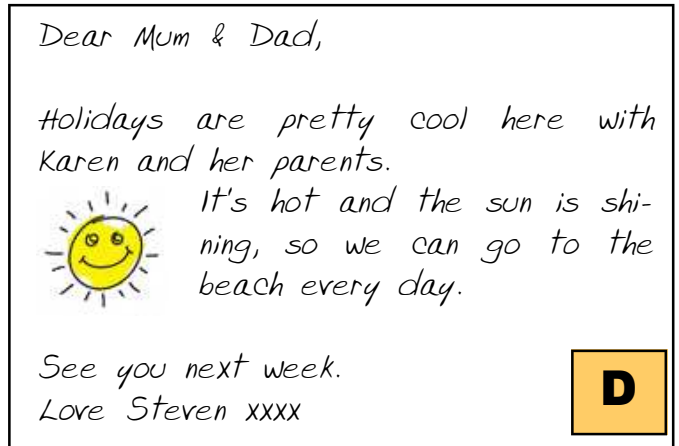 Dear Mum & Dad,
Holidays are pretty cool here with
Karen and her parents.
It's hot and the sun is shi-
ning, so we can go to the
beach every day.
See you next week.
Love Steven xxxx
D